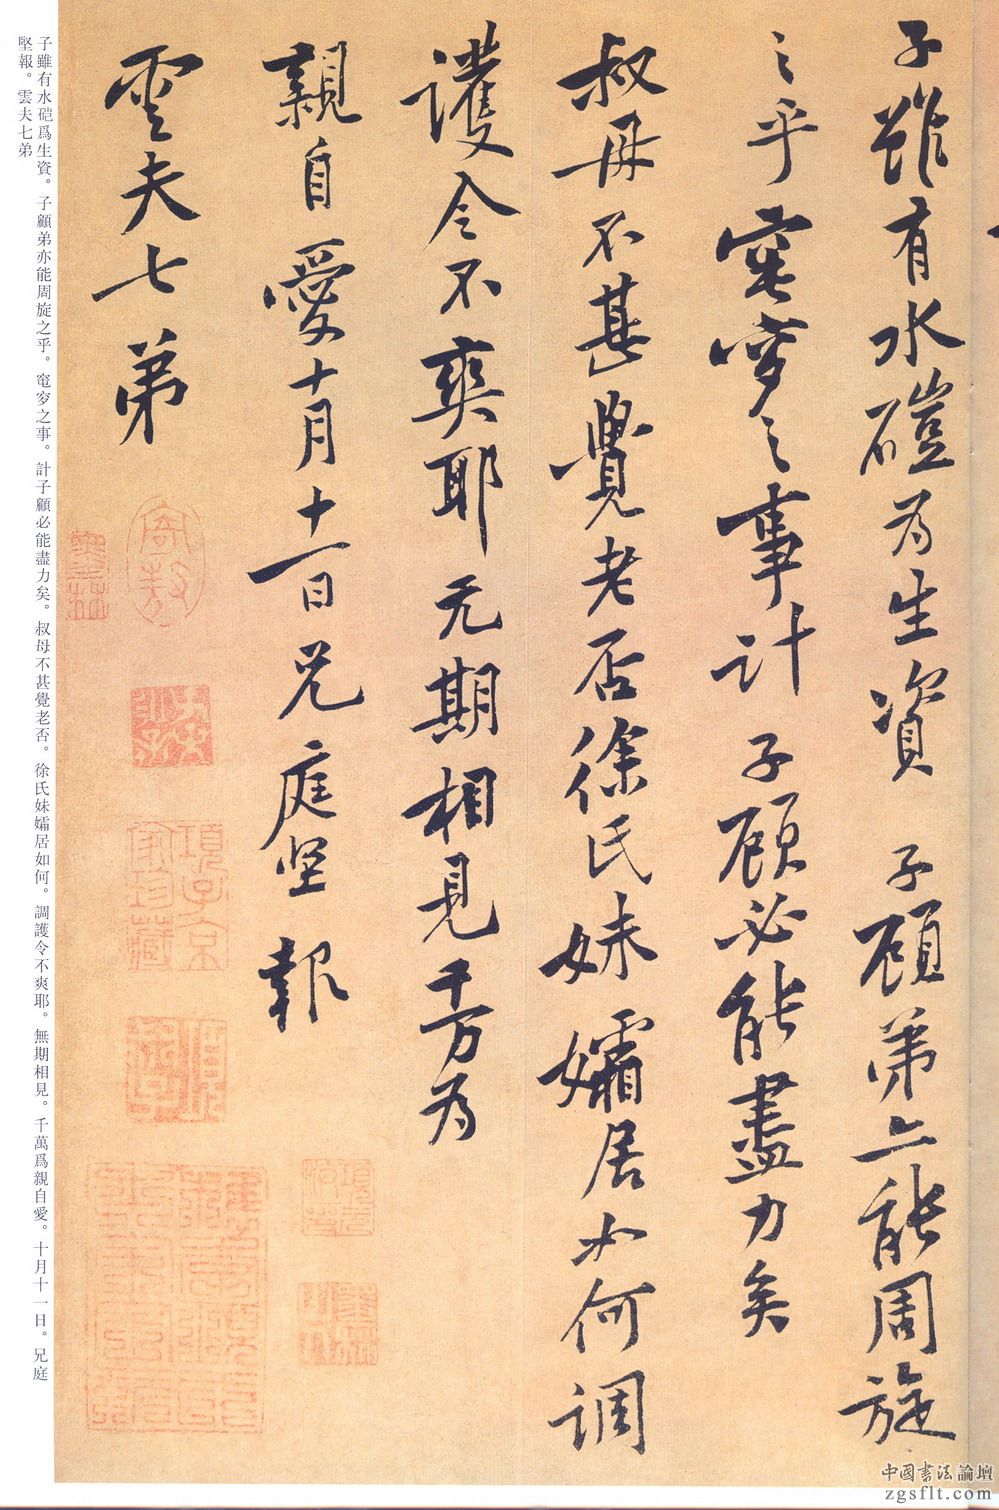 子雖有水磑为生資子顾弟亦能周旋
之乎窀穸之事计子顾必能盡力矣
叔母不甚覺老否徐氏妹孀居如何调
護令不爽耶无期相見千万为
親自愛十月十一日兄庭坚報
雲夫七弟
子雖有水硙爲生資。子顧弟亦能周旋之乎。窀穸之事。計子顧必能盡力矣。叔母不甚覺老否。徐氏妹孀居如何。調護令不爽耶。無期相見。千萬爲親自愛。十月十一日。兄庭
堅報。雲夫七弟
項子京
家珍藏
中國書法論壇
zgsflt.com